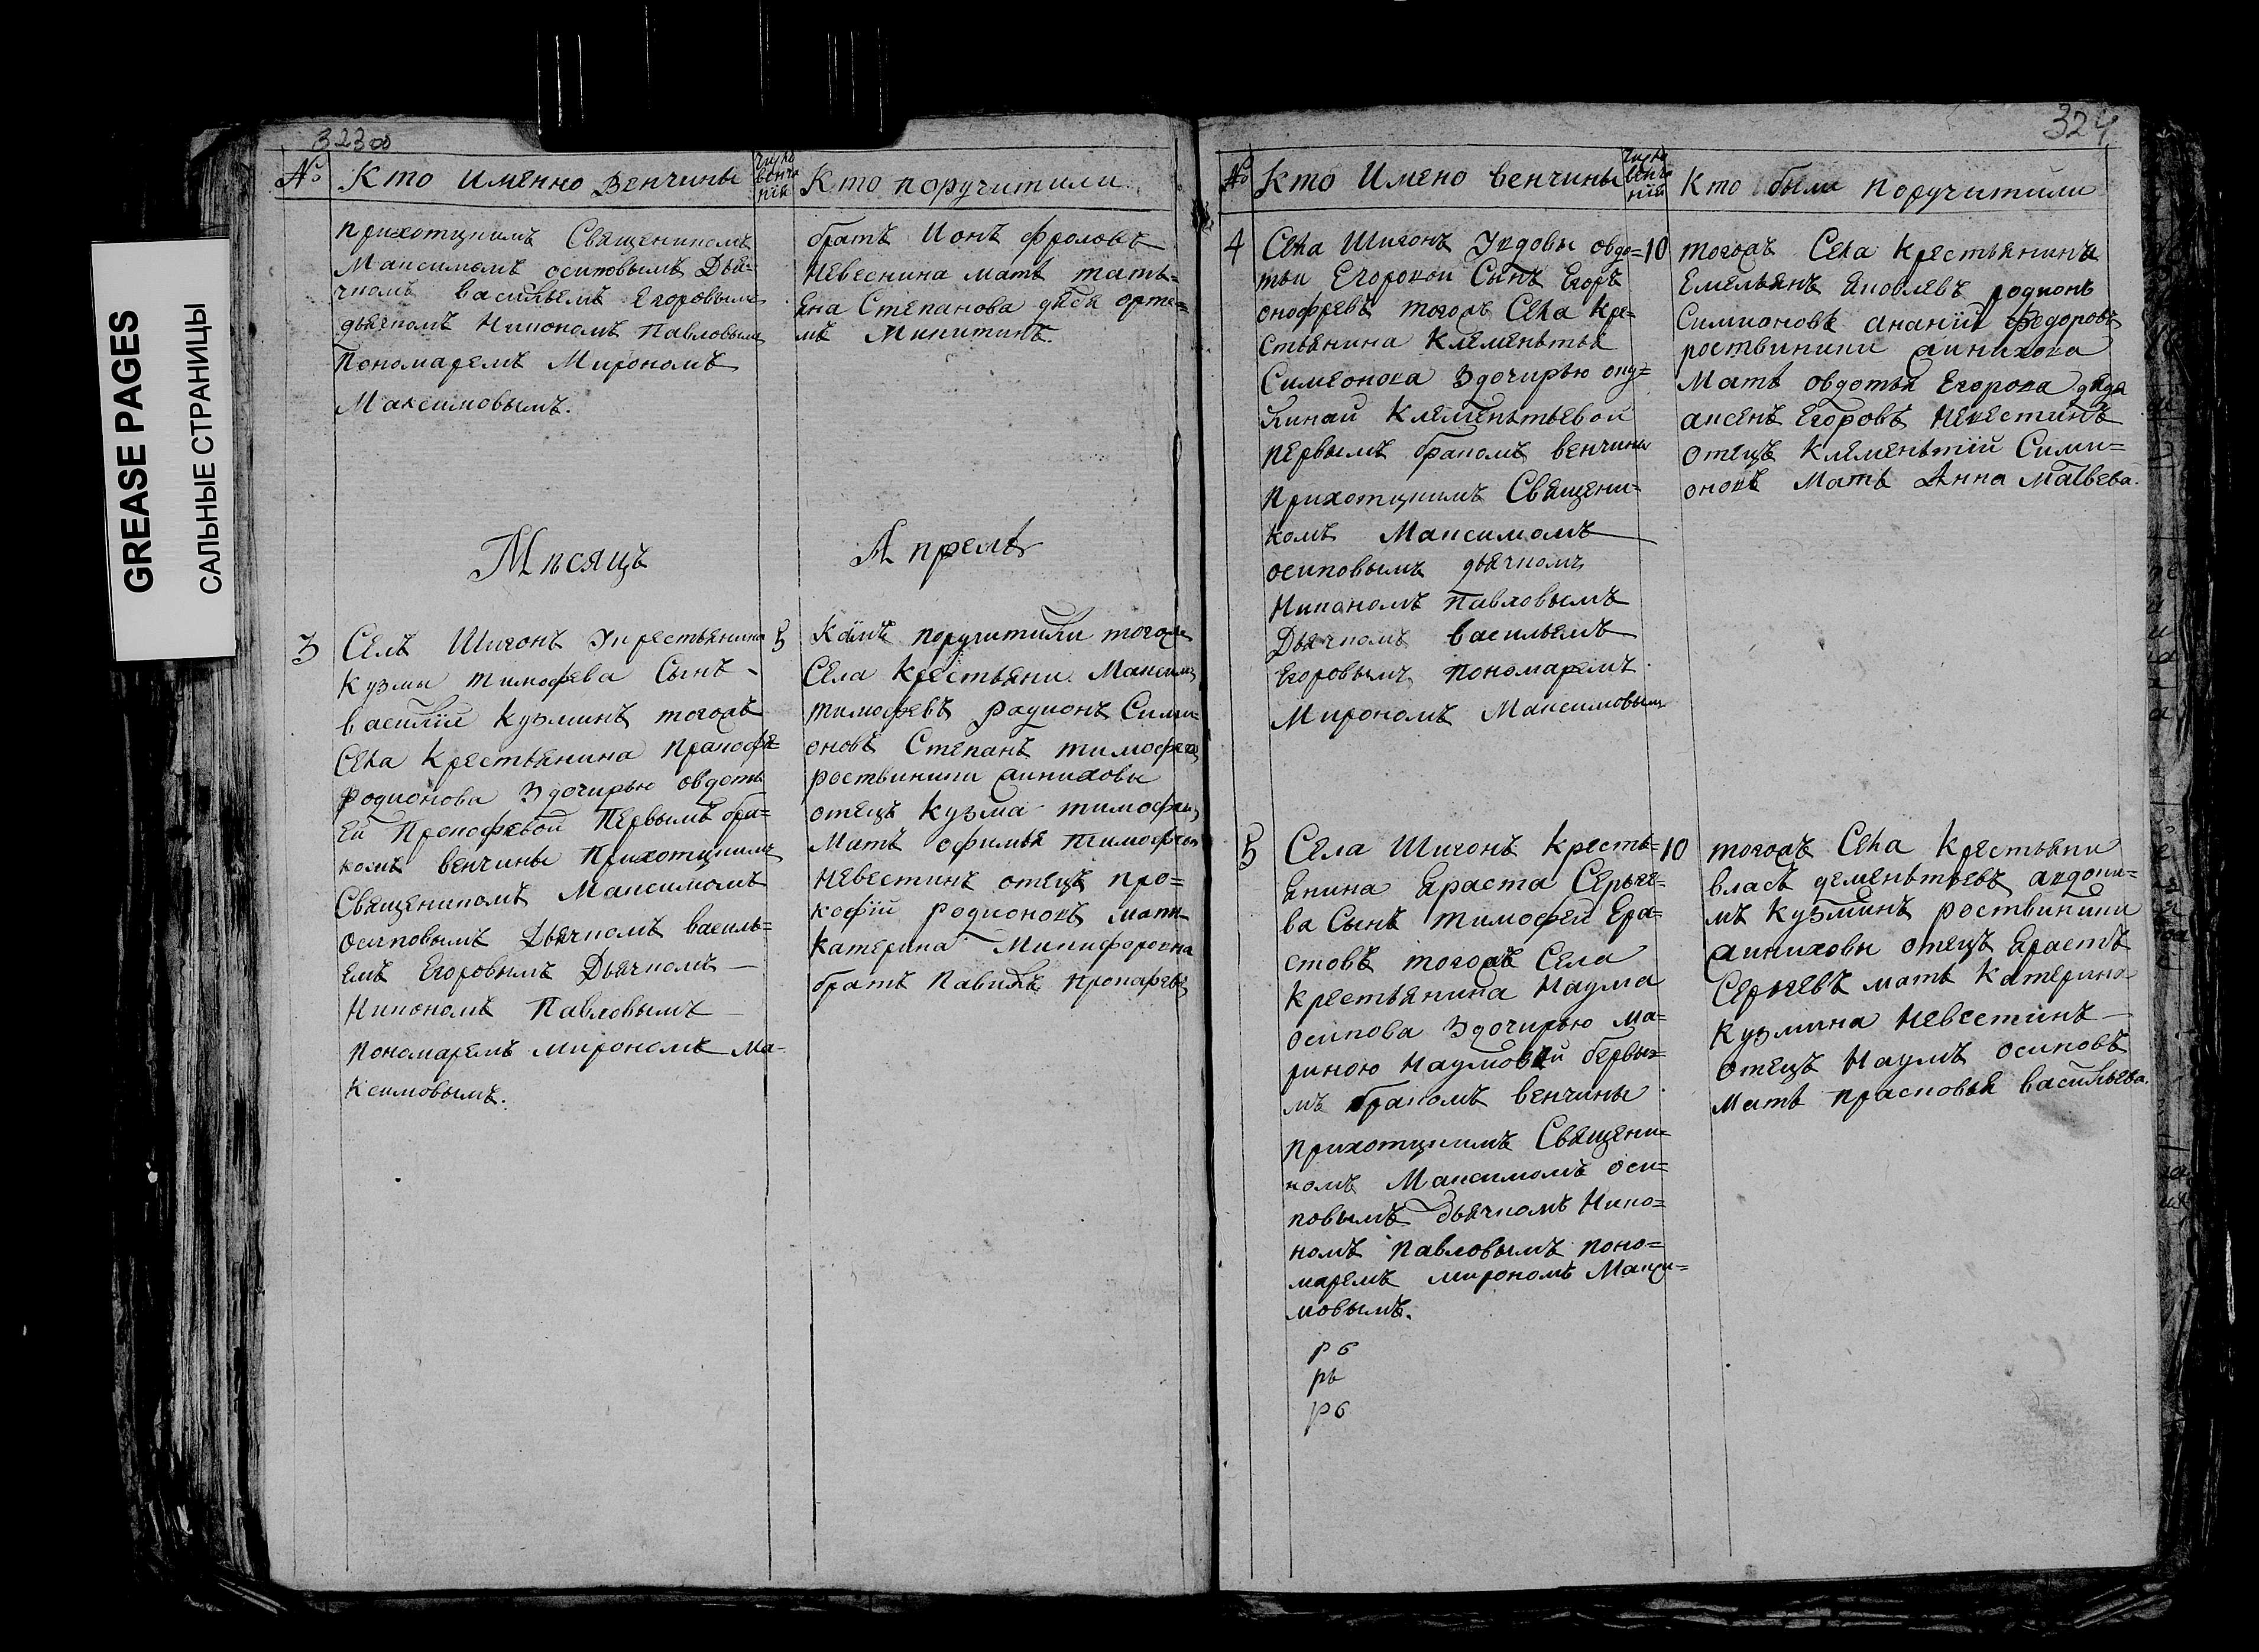 GREASE PAGES
САЛЬНЫЕ СТРАНИЦЫ
323
№ Кто именно венчины
число венчанїя
Кто поручитили
прихотцкимъ Священикомъ
Максимомъ осиповымъ Дья=
чкомъ васильемъ Егоровымъ
дьячкомъ Никономъ Павловымъ
Пономаремъ Мирономъ
Максимовымъ.
братъ Ионъ фроловъ
Невеснина мать тать=
яна Степанова дядя орте=
мъ Микитинъ.
Мѣсяцъ Апрель
3
Селъ Шигонъ Укрестьянина
кузмы тимофева Сынъ
василїй кузминъ тогожъ
Села крестьянина прокофья
родионова Здочирью овдоть
ей Прокофевой Первымъ бра=
комъ венчины Прихотцкимъ
Священикомъ Максимомъ
Осиповымъ Дьячкомъ василь=
емъ Егоровымъ Дьячкомъ
Никономъ Павловымъ
пономаремъ мирономъ Ма=
ксимовымъ.
5
поручитили тогоже
Села крестьяни Максимъ
тимофевъ родионъ Сими=
оновъ Степанъ тимофевъ
роствиники аниховы
отецъ кузма тимофевъ
Мать офимья тимофева
Невестинъ отецъ про=
кофїй родионовъ мать
катерина Микифоровна
братъ Павилъ прокафевъ
324
№ Кто Имено венчины
число венчанїя
Кто были поручитили
4
Села Шигонъ Увдовы овдо=
тьи Егоровой Сынъ Егоръ
онофревъ тогожъ Села кре=
стьянина клементья
Симеонова Здочирью оку=
линай клементьевой
первымъ бракомъ венчины
прихотцкимъ Священи=
комъ Максимомъ
осиповымъ дьячкомъ
Никаномъ Павловымъ
Дьячкомъ васильемъ
Егоровымъ пономаремъ
Мирономъ Максимовымъ
10
тогожъ Села крестьянинъ
Емельянъ Яковлевъ родионъ
Симионовъ ананїй федоровъ
роствиники анихова
Мать овдотья Егорова дядя
аксенъ Егоровъ Невестинъ
отецъ клементїй Сими=
оновъ Мать Анна Матвева.
5
Села Шигонъ кресть=
янина Ераста Серьге=
ва Сынъ тимофей Ера=
стовъ тогожъ Села
крестьянина Наума
осипова Здочирью ма=
риною Наумовой первы=
мъ бракомъ венчины
прихотцкимъ Священи=
комъ Максимомъ оси=
повымъ дьячкомъ Нико=
номъ Павловымъ поно=
маремъ мирономъ Макси=
мовымъ.
рб
рь
рб
10
тогожъ Села крестьяни
власъ дементьевъ авдоки=
мъ кузминъ роствиники
аниховы отецъ Ерастъ
Серьгевъ мать катерина
кузмина Невестинъ
отецъ Наумъ осиповъ
мать прасковья васильева.